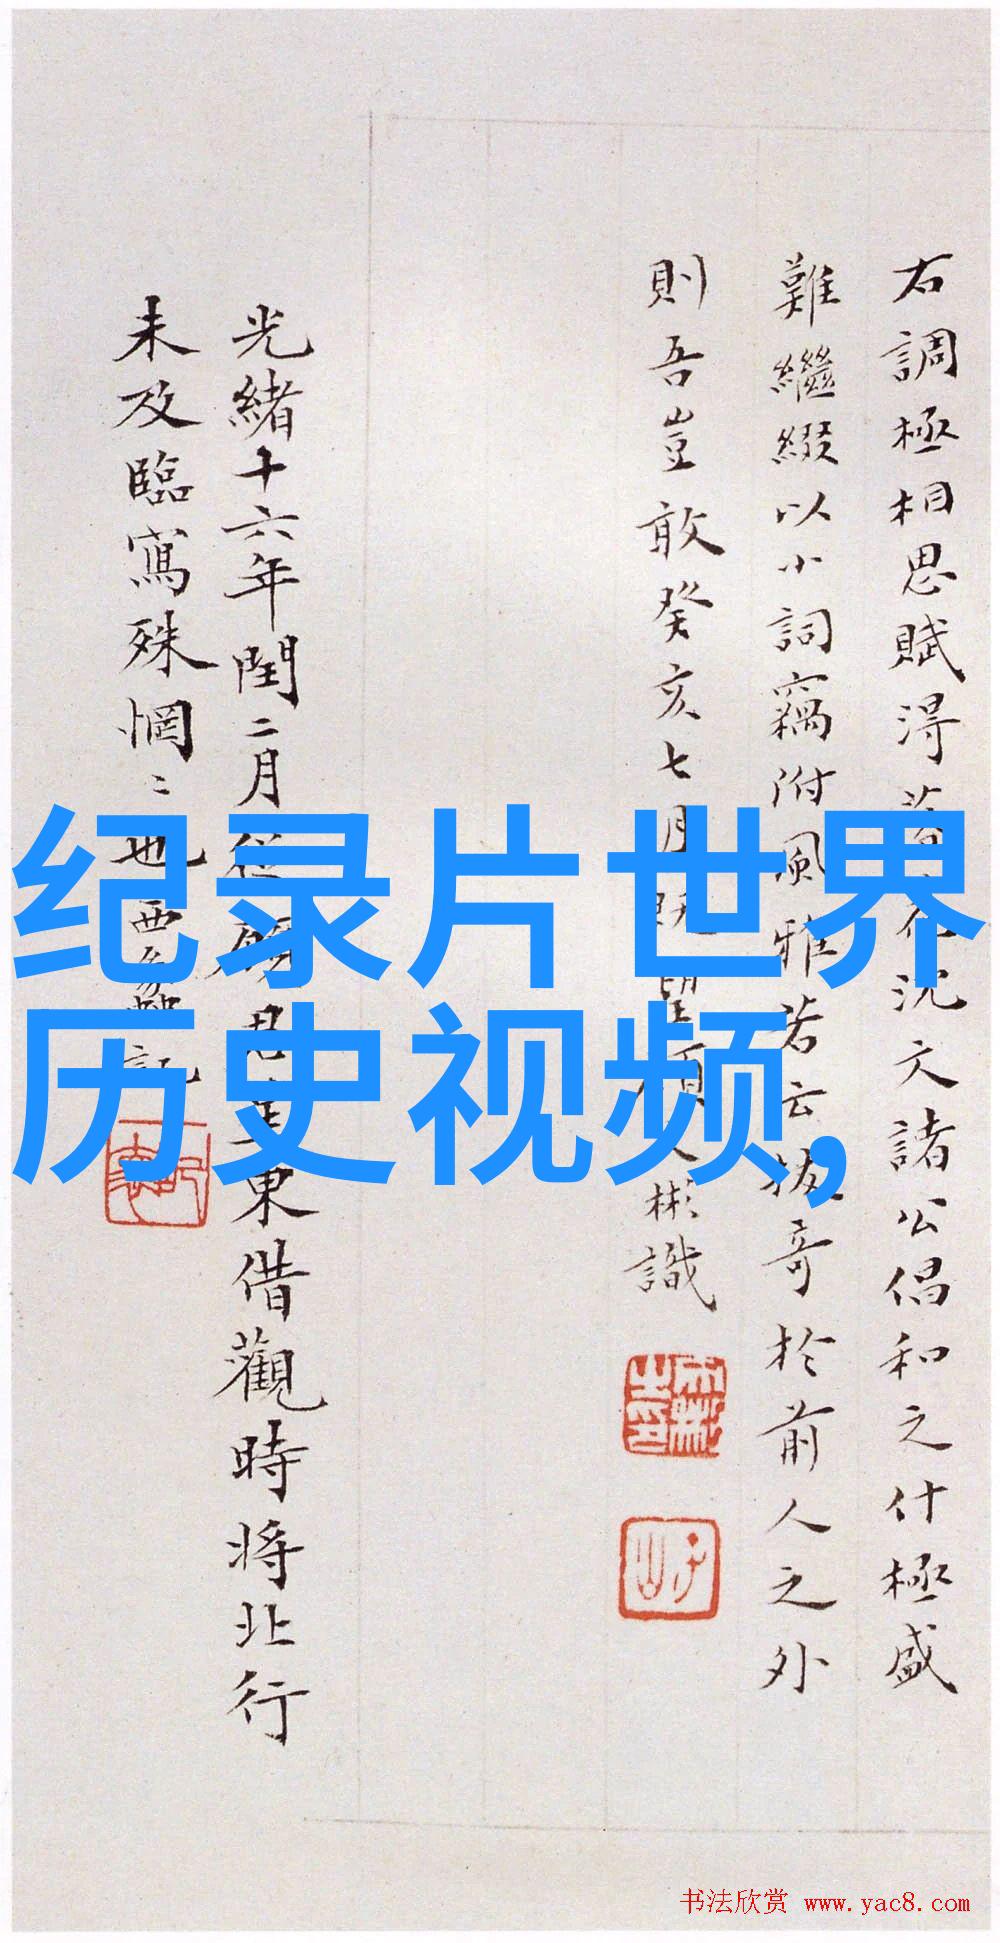 右調極相思賦得
沈文諸公倡和之什極盛
難繼綴以小詞竊附風雅若云拔奇於前人之外
則吾豈敢癸亥七月既望
彬識
光緒十六年閏二月從
東借觀時將北行
未及臨寫殊惘〻也
記
纪录片世界
历史视频,
书法欣赏 www.yac8.com